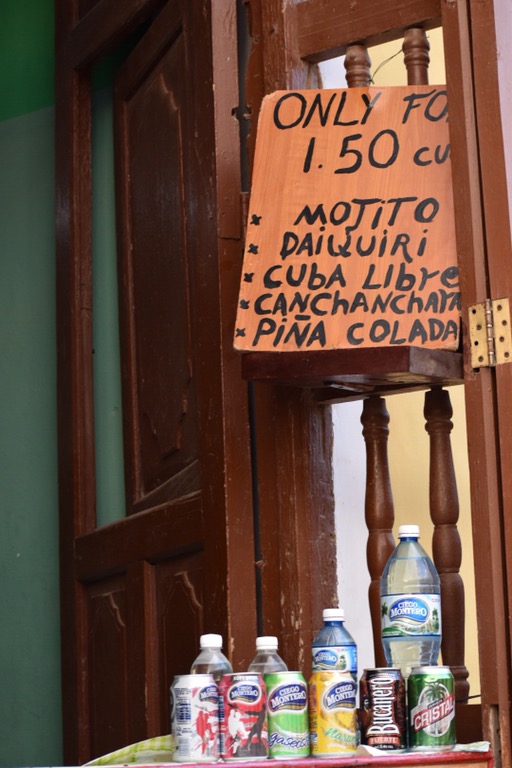 ONLY FO
1.50 CU
* MOJITO
* DAIQUIRI
* CUBA LIBrE
* CANCHANCHAYA
* PIÑA COLADA
CIEGO
MONTERO
CIEGO
MONTERO
CIEGO
MONTERO
CIEGO
MONTERO
CIEGO
MONTERO
Bucanero
FUERTE
CRISTAL